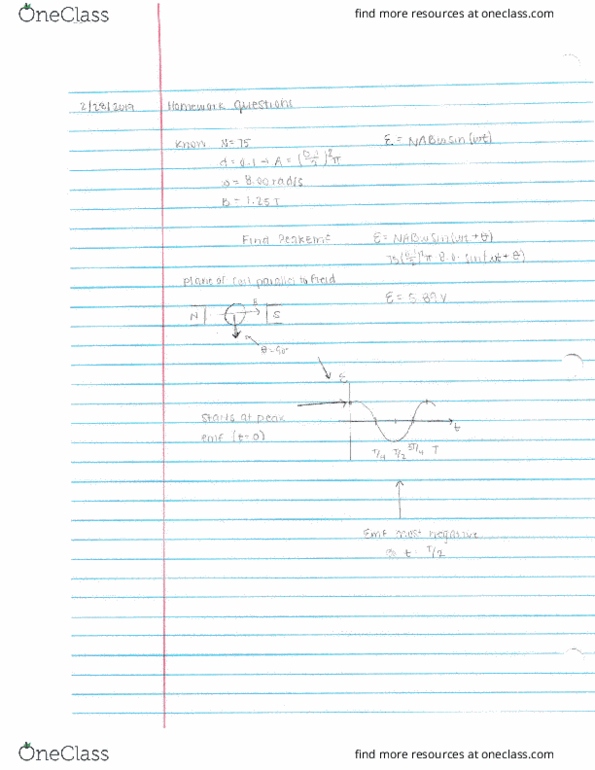 OneClass
find more resources at oneclass.com
2/28/2019 Homework Questions
Know N=75 ε = NABωsin(ωt)
d = 0.1 → A = (0.1/2)²π
ω = 8.00 rad/s
B = 1.25 T
Find Peak emf ε = NABω sin(ωt + θ)
75(0.1/2)²π 8.0 · sin(ωt + θ)
Plane of coil parallel to field
ε = 5.89 V
B
N S
θ = 90°
ε
starts at peak
emf (t=0)
t
T/4 T/2 3T/4 T
Emf most negative
@ t T/2
OneClass
find more resources at oneclass.com